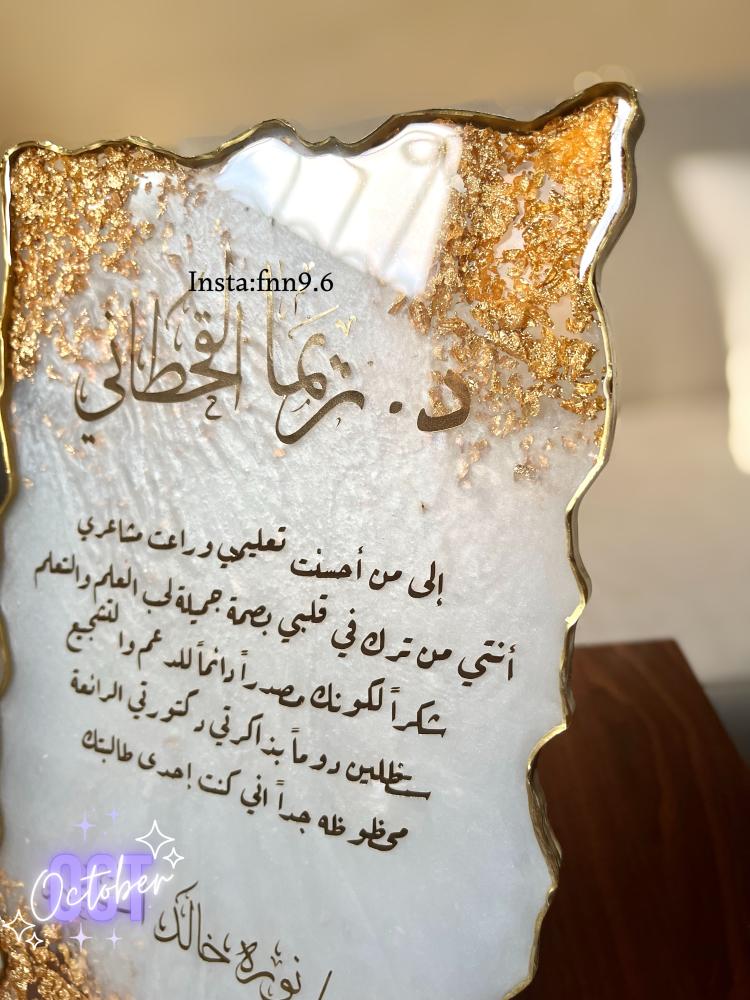 Insta:fnn9.6
د. ريما القحطاني
إلى من أحسنت تعليمي وراعت مشاعري
أنتي من ترك في قلبي بصمة جميلة لحب العلم والتعلم
شكراً لكونك مصدراً دائماً للدعم والتشجيع
ستظلين دوماً بذاكرتي دكتورتي الرائعة
محظوظه جداً اني كنت إحدى طالبتك
نوره خالد
OCT
October